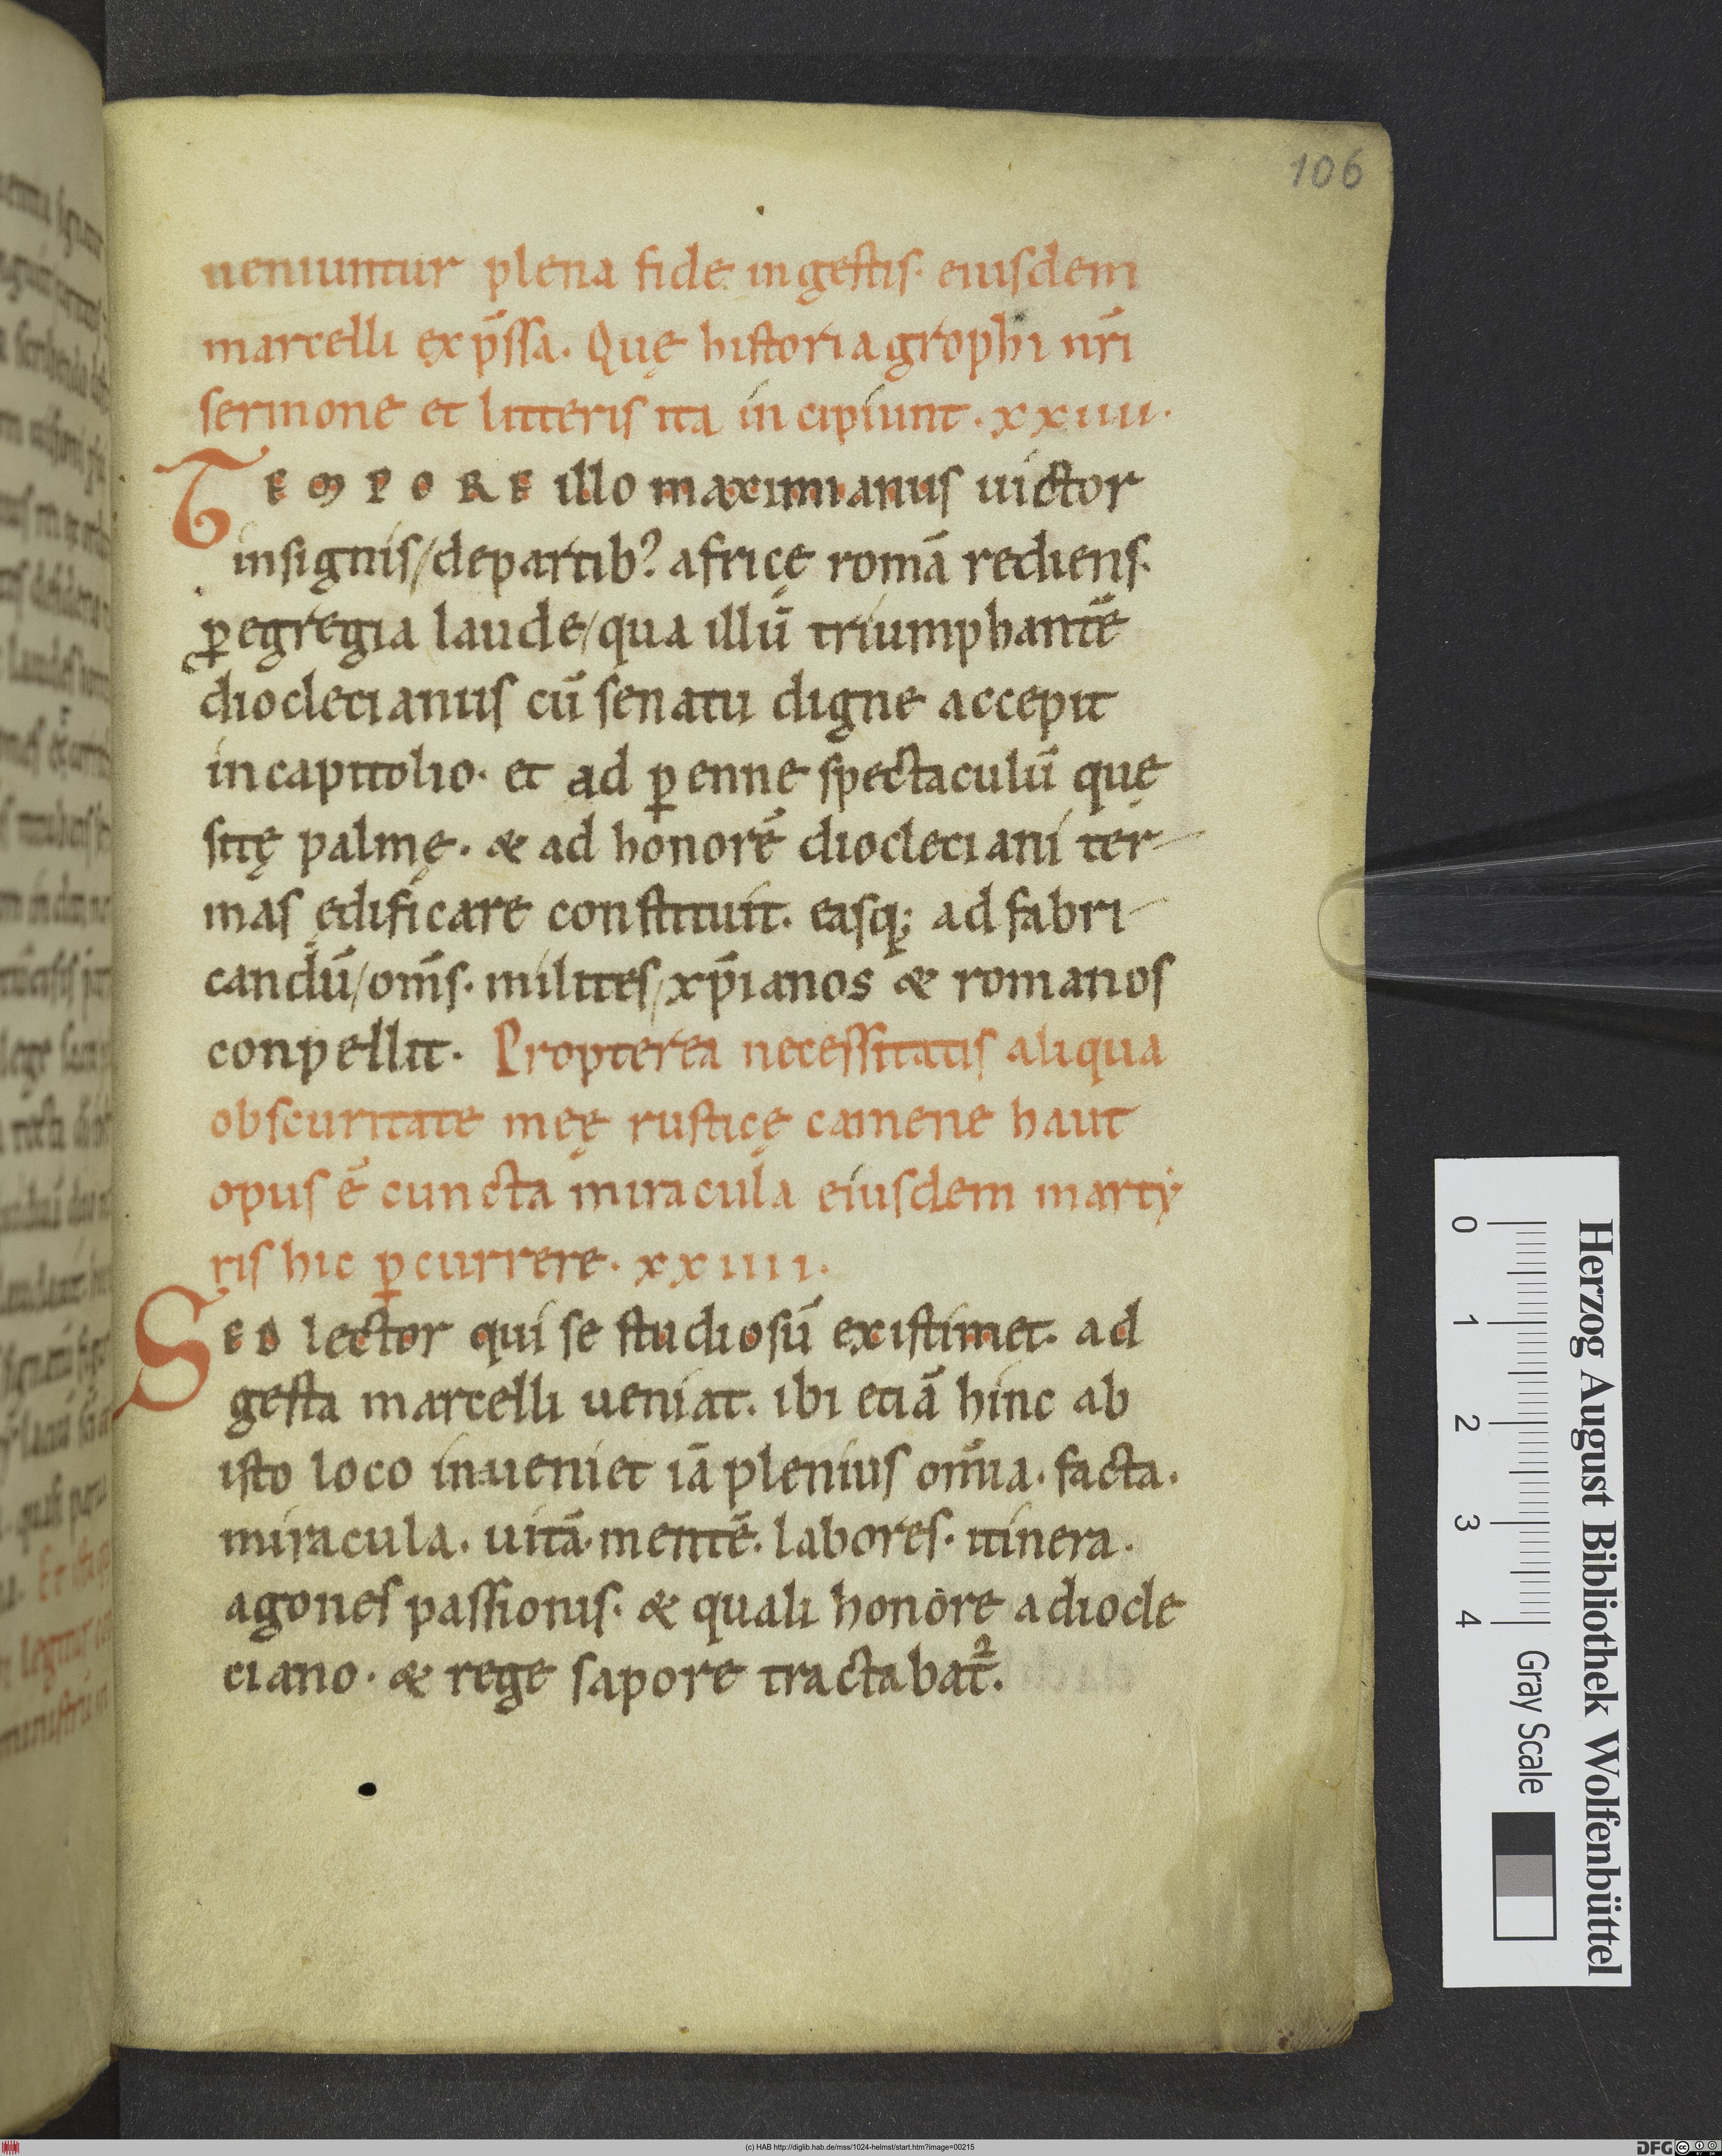 106
ueniuntur plena fide in gestis· eiusdem
marcelli exp̄ssa. Quę historia grophi nr̄i
sermone et litteris ita incipiunt· xxiiii·
TEMPORE illo maximianus uictor
insignis/ de partib? africę romā rediens·
ꝑ egregia laude/ qua illū triumphantē
dioclecianus cū senatu digne accepit
in capitolio· et ad ꝑenne spectaculū quę
sitę palmę· & ad honorē diocleciani ter-
mas ędificare constituit· easq; ad fabri-
candū/ om̄s· milites/ xp̄ianos & romanos
conpellit· Propterea necessitatis aliqua
obscuritate meę rusticę camene haut
opus ē cuncta miracula eiusdem marty
ris hic ꝑcurrere· xxiiii·
SED lector qui se studiosū existimet· ad
gesta marcelli ueniat· ibi etiā hinc ab
isto loco inueniet iā plenius om̄ia· facta·
miracula· uitā· mentē· labores· itinera·
agones passionis· & quali honore a diocle
ciano· & rege sapore tractabat᷑.
Herzog August Bibliothek Wolfenbüttel
0 1 2 3 4 Gray Scale
(c) HAB http://diglib.hab.de/mss/1024-helmst/start.htm?image=00215
DFG